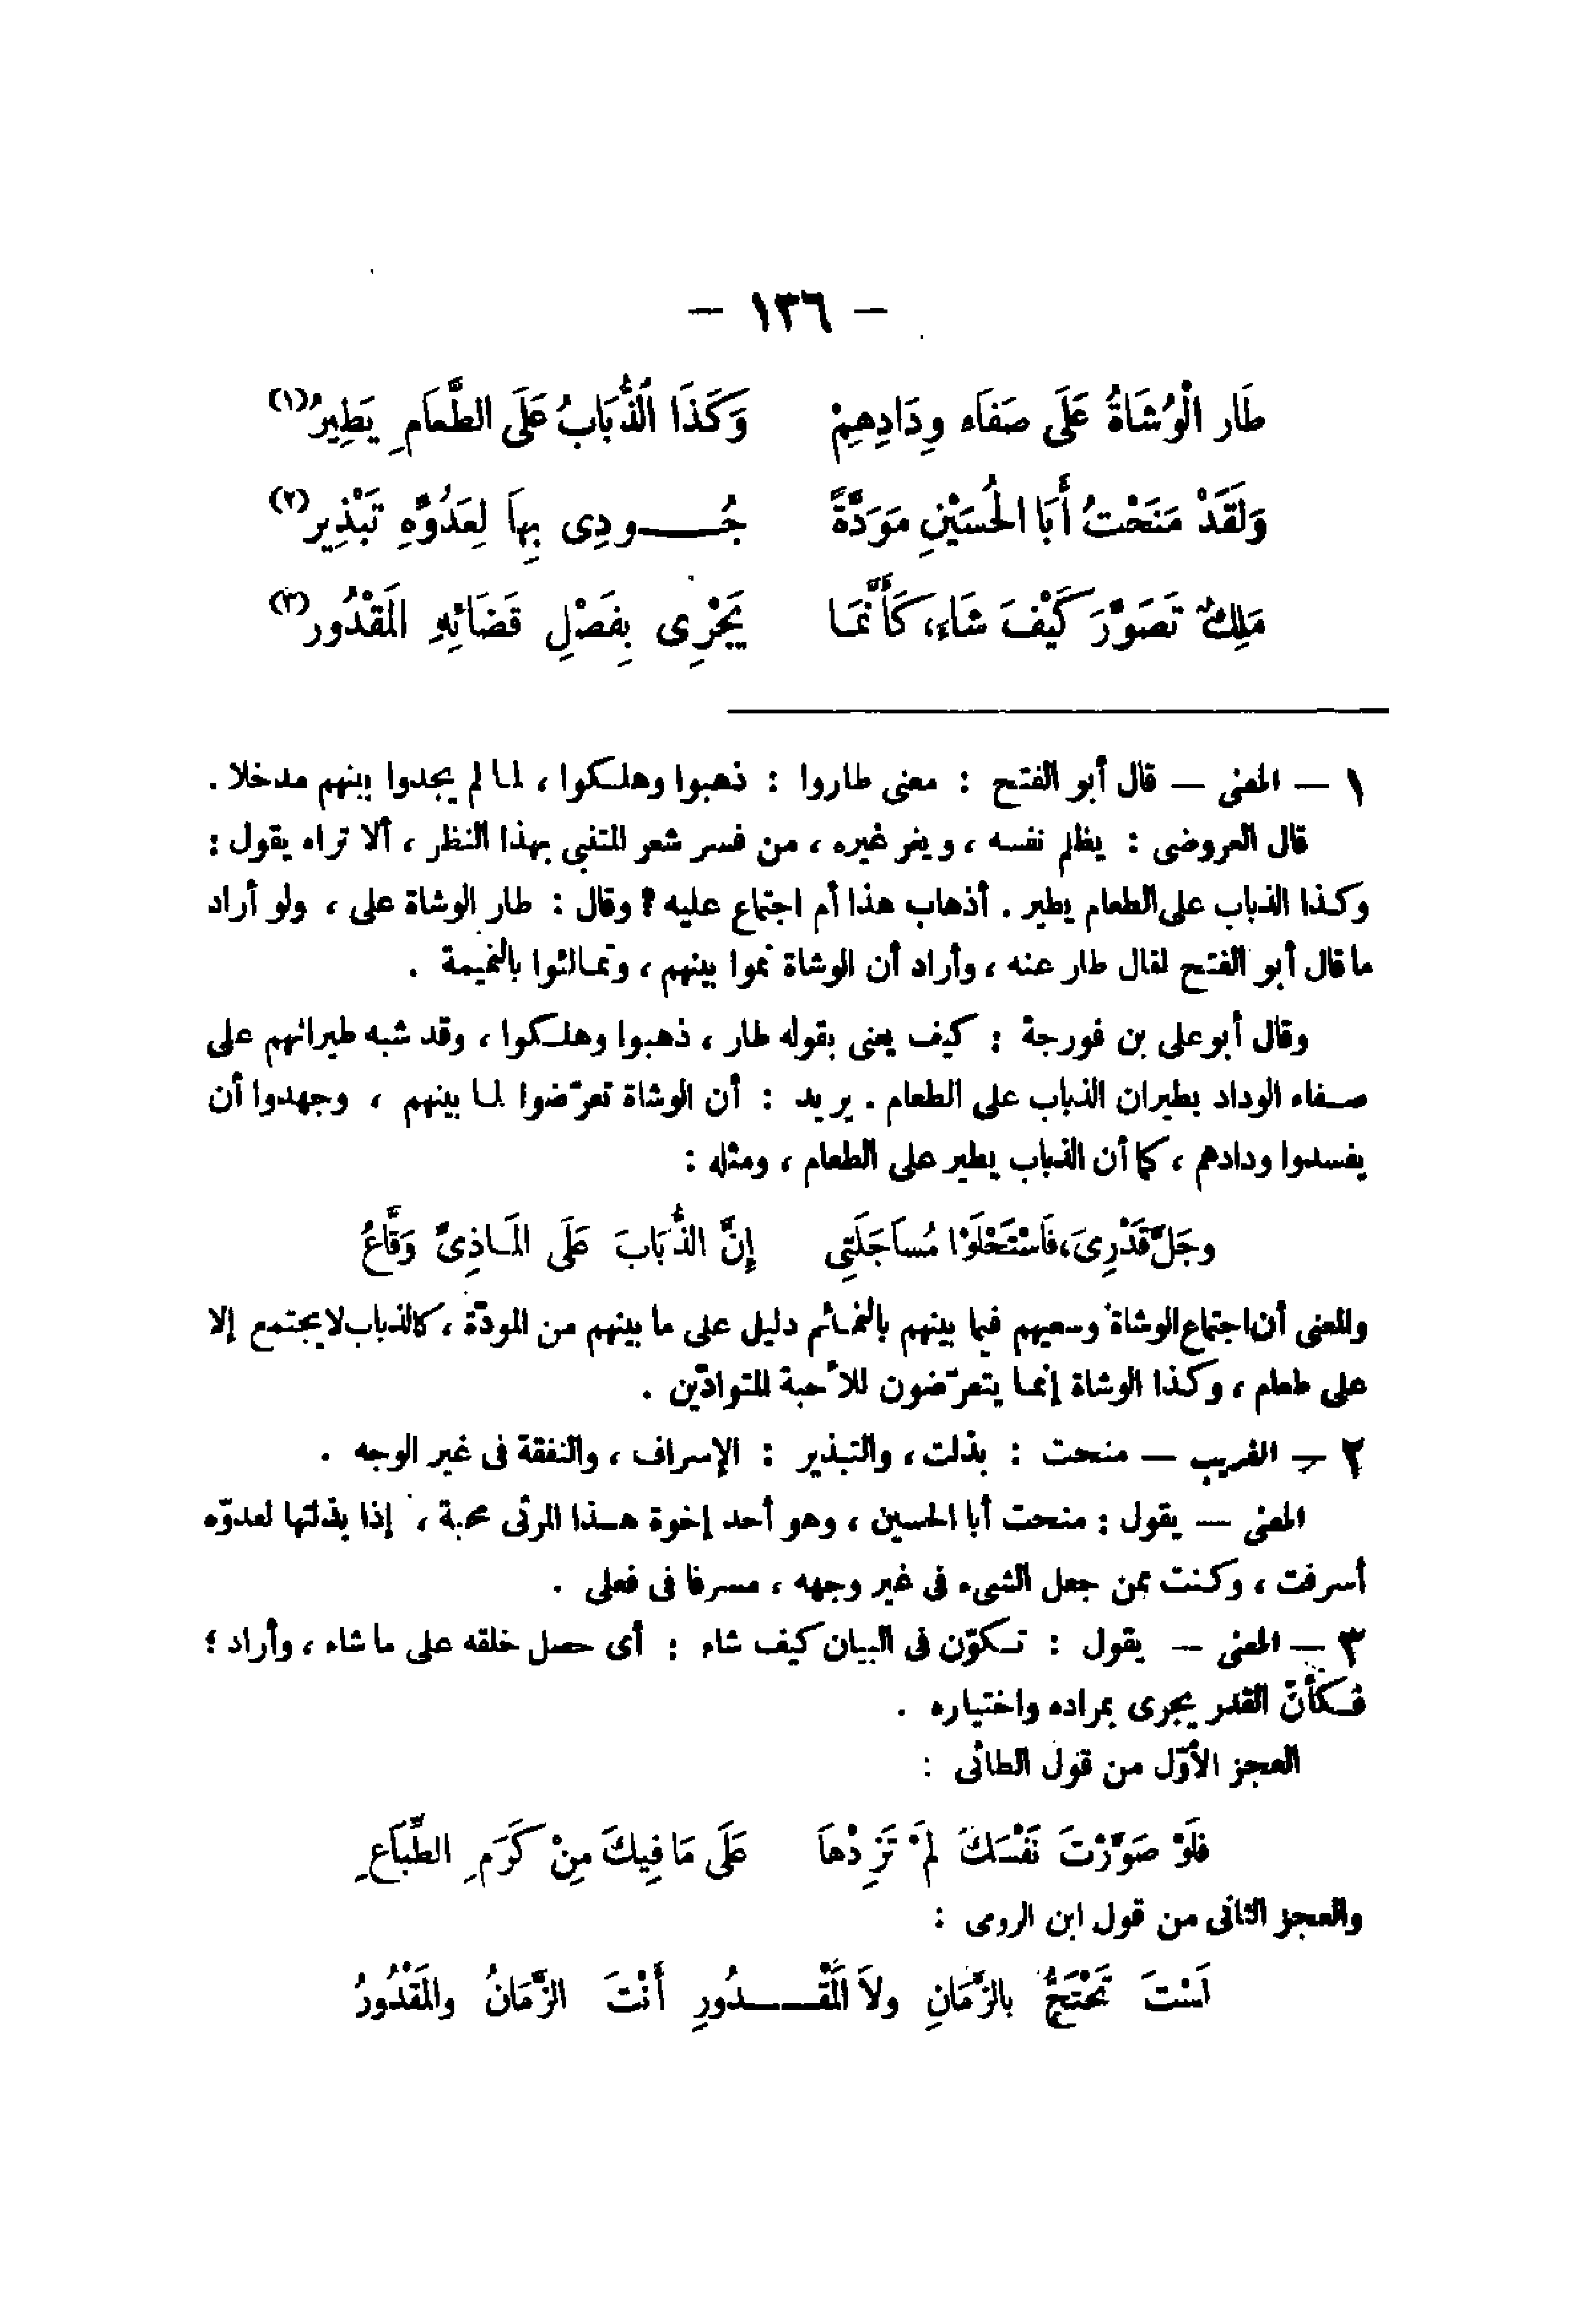 — ١٣٦ —
طَار الْوُشَاةُ عَلَى صَفَاء وِدَادِهِمْ وَكَذَا الذُّبَابُ عَلَى الطَّعَامِ يَطِيرُ (١)
وَلَقَدْ مَنَحْتُ أَبَا الحُسَيْنِ مَوَدَّةً جُــودِى بِهَا لِعَدُوِّهِ تَبْذِير (٢)
مَلِكٌ تَصَوَّرَ كَيْفَ شَاءَ، كَأَنَّمَا يَجْرِى بِفَصْلِ قَضَائِهِ المَقْدُور (٣)
١ — المعنى — قال أبو الفتح : معنى طاروا : ذهبوا وهلكوا ، لما لم يجدوا بينهم مدخلا .
قال العروضى : يظلم نفسه ، ويغر غيره ، من فسر شعر المتنبى بهذا النظر ، ألا تراه يقول :
وكذا الذباب على الطعام يطير . أذهاب هذا أم اجتماع عليه ؟ وقال : طار الوشاة على ، ولو أراد
ما قال أبو الفتح لقال طار عنه ، وأراد أن الوشاة نموا بينهم ، وتمالئوا بالنميمة .
وقال أبو على بن فورجة : كيف يعنى بقوله طار ، ذهبوا وهلكوا ، وقد شبه طيرانهم على
صفاء الوداد بطيران الذباب على الطعام . يريد : أن الوشاة تعرّضوا لما بينهم ، وجهدوا أن
يفسدوا ودادهم ، كما أن الذباب يطير على الطعام ، ومثله :
وجَلَّ قَدْرِىَ، فَاسْتَحْلَوْا مُسَاجَلَتِى إِنَّ الذُّبَابَ عَلَى المَـاذِىِّ وَقَّاعُ
والمعنى أن اجتماع الوشاة وسعيهم فيما بينهم بالنمائم دليل على ما بينهم من المودّة ، كالذباب لا يجتمع إلا
على طعام ، وكذا الوشاة إنما يتعرّضون للأحبة المتوادّين .
٢ — الغريب — منحت : بذلت ، والتبذير : الإسراف ، والنفقة فى غير الوجه .
المعنى — يقول : منحت أبا الحسين ، وهو أحد إخوة هـذا المرثى محبة ، إذا بذلتها لعدوّه
أسرفت ، وكنت ممن جعل الشىء فى غير وجهه ، مسرفا فى فعلى .
٣ — المعنى — يقول : تكوّن فى البيان كيف شاء : أى حصل خلقه على ما شاء ، وأراد ؛
فكأنّ القدر يجرى بمراده واختياره .
العجز الأوّل من قول الطائى :
فلَوْ صَوَّرْتَ نَفْسَكَ لَمْ تَزِدْهَا عَلَى مَا فِيكَ مِنْ كَرَمِ الطِّبَاعِ
والعجز الثانى من قول ابن الرومى :
لَسْتَ تَحْتَجُّ بالزَّمَانِ ولاَ المَقْـــدُورِ أَنْتَ الزَّمَانُ والمَقْدُورُ